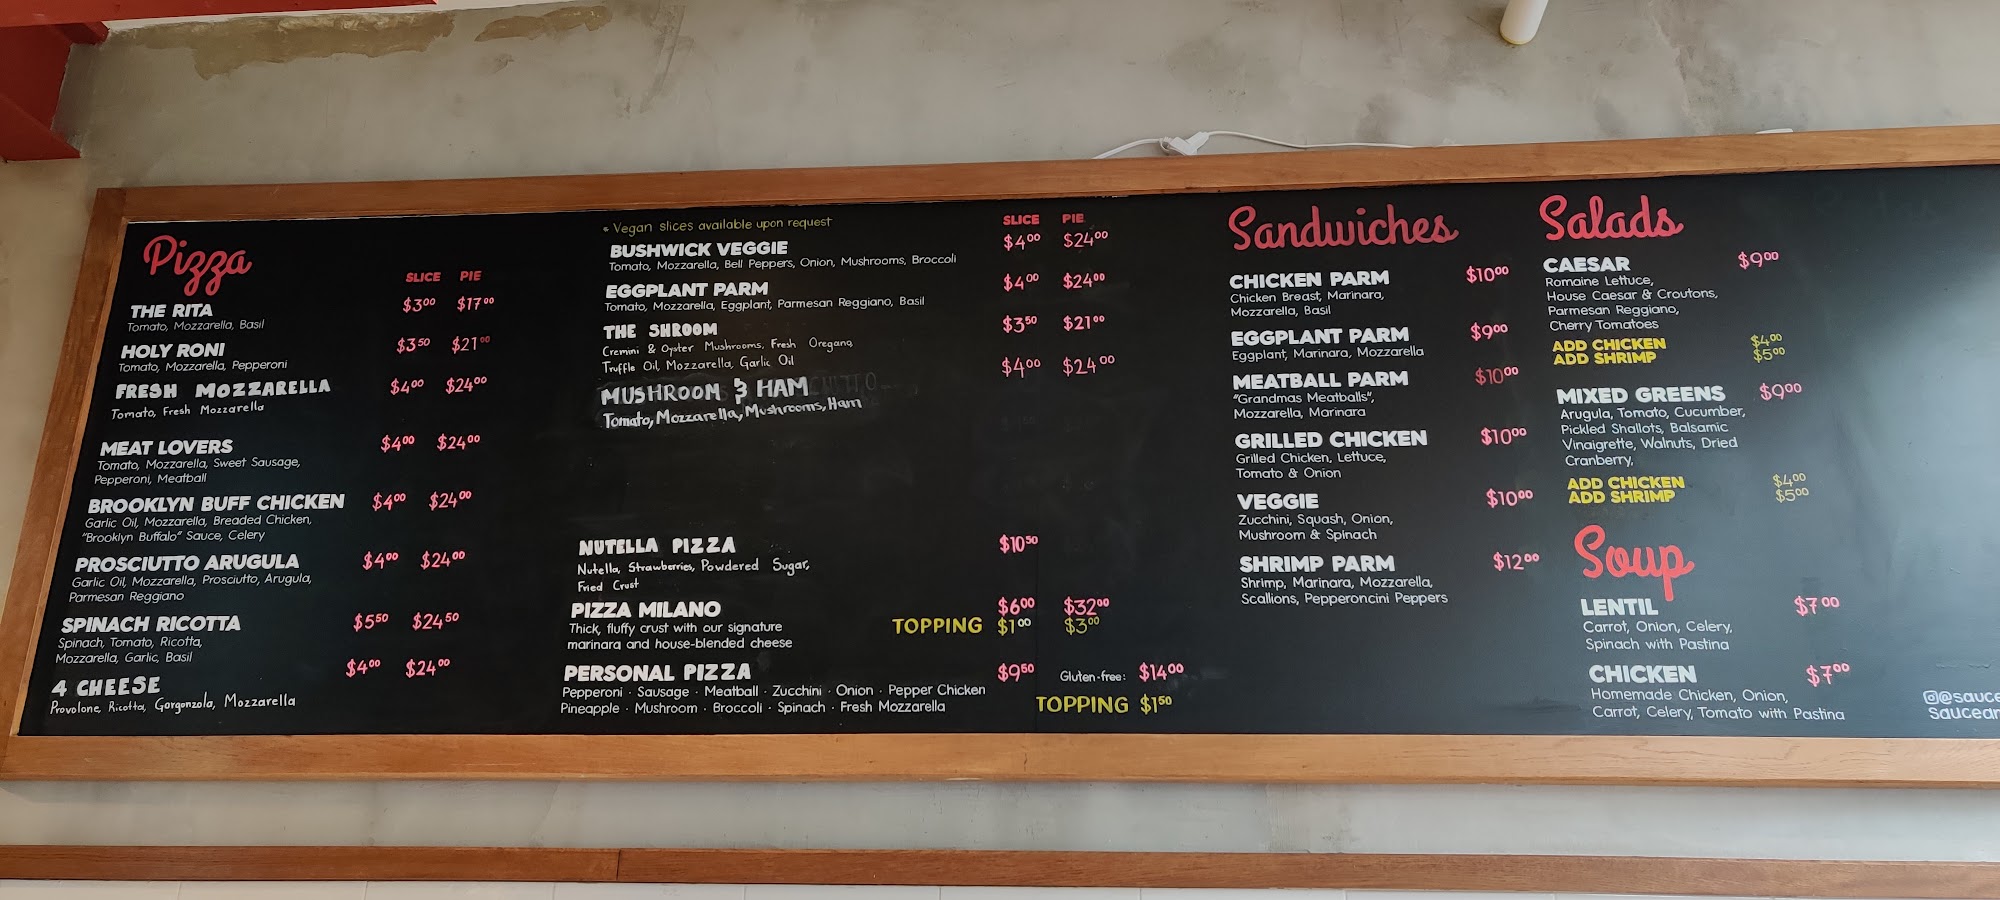 Pizza
SLICE PIE
THE RITA $3.00 $17.00
Tomato, Mozzarella, Basil
HOLY RONI $3.50 $21.00
Tomato, Mozzarella, Pepperoni
FRESH MOZZARELLA $4.00 $24.00
Tomato, Fresh Mozzarella
MEAT LOVERS $4.00 $24.00
Tomato, Mozzarella, Sweet Sausage,
Pepperoni, Meatball
BROOKLYN BUFF CHICKEN $4.00 $24.00
Garlic Oil, Mozzarella, Breaded Chicken,
"Brooklyn Buffalo" Sauce, Celery
PROSCIUTTO ARUGULA $4.00 $24.00
Garlic Oil, Mozzarella, Prosciutto, Arugula,
Parmesan Reggiano
SPINACH RICOTTA $5.50 $24.50
Spinach, Tomato, Ricotta,
Mozzarella, Garlic, Basil
4 CHEESE $4.00 $24.00
Provolone, Ricotta, Gorgonzola, Mozzarella
* Vegan slices available upon request
SLICE PIE
BUSHWICK VEGGIE $4.00 $24.00
Tomato, Mozzarella, Bell Peppers, Onion, Mushrooms, Broccoli
EGGPLANT PARM $4.00 $24.00
Tomato, Mozzarella, Eggplant, Parmesan Reggiano, Basil
THE SHROOM $3.50 $21.00
Cremini & Oyster Mushrooms, Fresh Oregano,
Truffle Oil, Mozzarella, Garlic Oil
MUSHROOM & HAM $4.00 $24.00
Tomato, Mozzarella, Mushrooms, Ham
NUTELLA PIZZA $10.50
Nutella, Strawberries, Powdered Sugar,
Fried Crust
PIZZA MILANO $6.00 $32.00
Thick, fluffy crust with our signature
marinara and house-blended cheese
TOPPING $1.00 $3.00
PERSONAL PIZZA $9.50 Gluten-free: $14.00
Pepperoni · Sausage · Meatball · Zucchini · Onion · Pepper Chicken
Pineapple · Mushroom · Broccoli · Spinach · Fresh Mozzarella
TOPPING $1.50
Sandwiches
CHICKEN PARM $10.00
Chicken Breast, Marinara,
Mozzarella, Basil
EGGPLANT PARM $9.00
Eggplant, Marinara, Mozzarella
MEATBALL PARM $10.00
"Grandmas Meatballs",
Mozzarella, Marinara
GRILLED CHICKEN $10.00
Grilled Chicken, Lettuce,
Tomato & Onion
VEGGIE $10.00
Zucchini, Squash, Onion,
Mushroom & Spinach
SHRIMP PARM $12.00
Shrimp, Marinara, Mozzarella,
Scallions, Pepperoncini Peppers
Salads
CAESAR $9.00
Romaine Lettuce,
House Caesar & Croutons,
Parmesan Reggiano,
Cherry Tomatoes
ADD CHICKEN $4.00
ADD SHRIMP $5.00
MIXED GREENS $9.00
Arugula, Tomato, Cucumber,
Pickled Shallots, Balsamic
Vinaigrette, Walnuts, Dried
Cranberry,
ADD CHICKEN $4.00
ADD SHRIMP $5.00
Soup
LENTIL $7.00
Carrot, Onion, Celery,
Spinach with Pastina
CHICKEN $7.00
Homemade Chicken, Onion,
Carrot, Celery, Tomato with Pastina
@sauce
Saucean